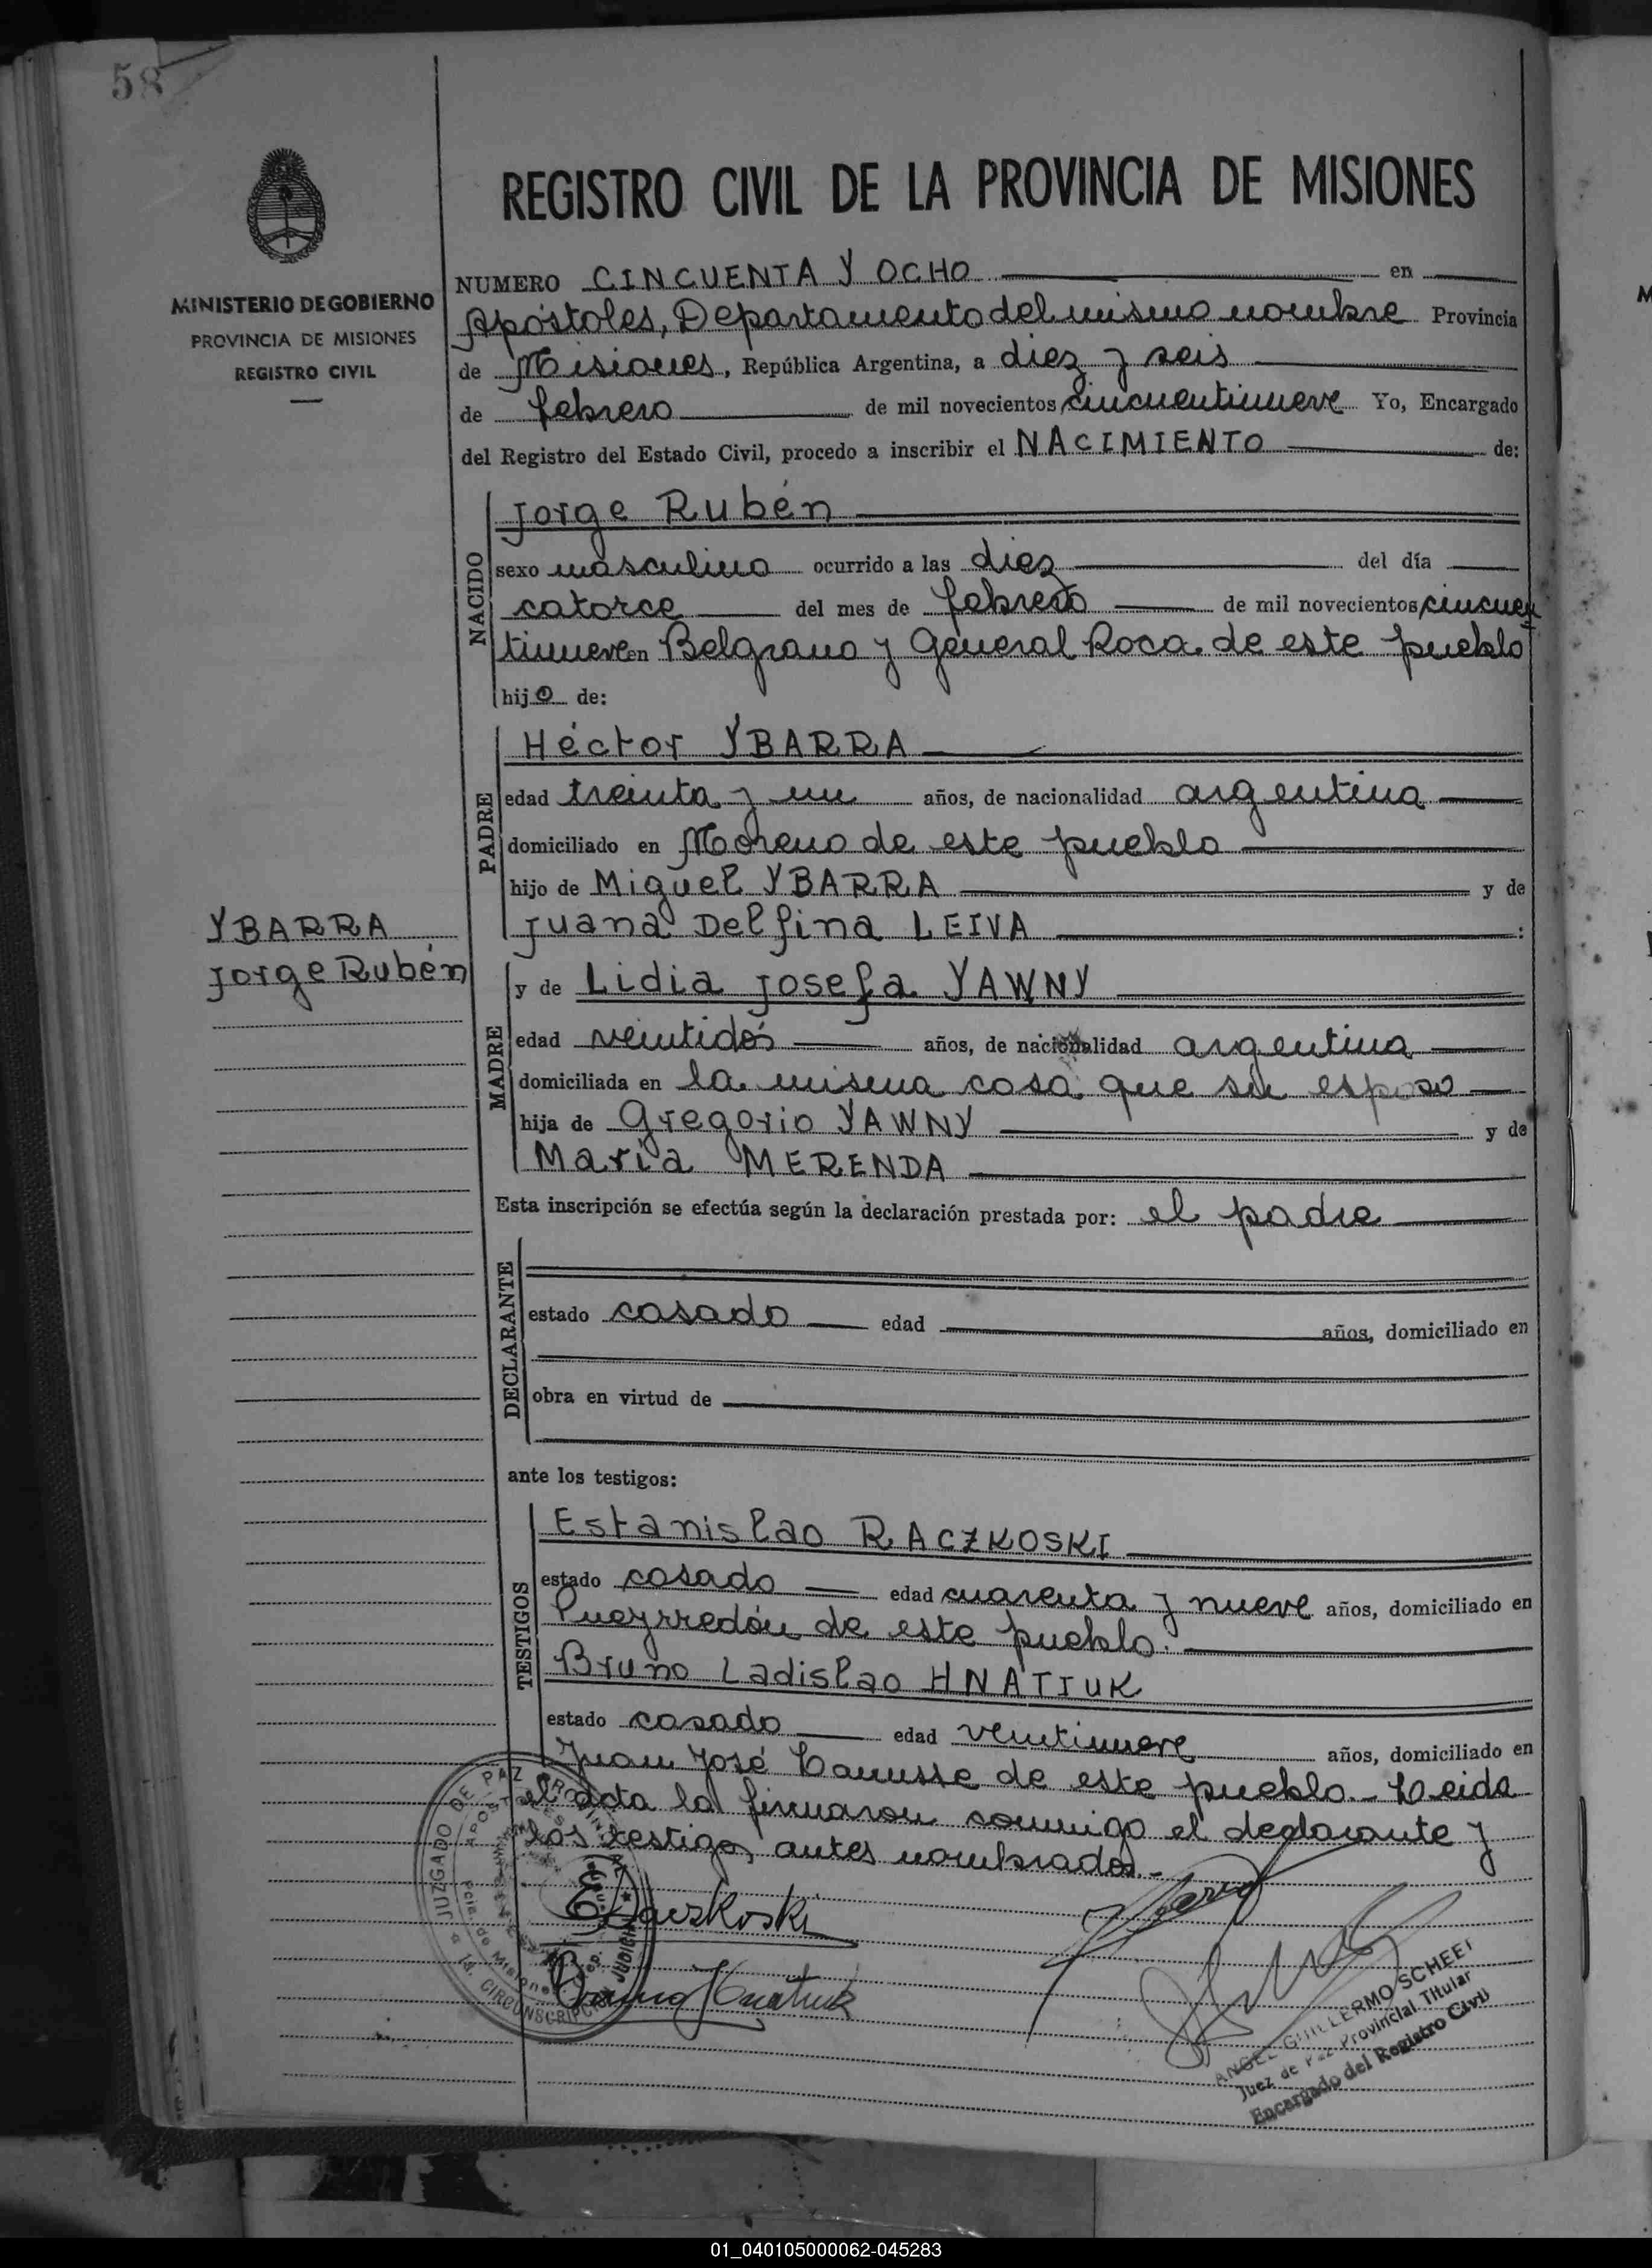 58
MINISTERIO DE GOBIERNO
PROVINCIA DE MISIONES
REGISTRO CIVIL
REGISTRO CIVIL DE LA PROVINCIA DE MISIONES
NUMERO CINCUENTA Y OCHO en
Apóstoles, Departamento del mismo nombre Provincia
de Misiones, República Argentina, a diez y seis
de febrero de mil novecientos cincuentinueve Yo, Encargado
del Registro del Estado Civil, procedo a inscribir el NACIMIENTO de:
NACIDO
Jorge Rubén
sexo masculino ocurrido a las diez del día
catorce del mes de febrero de mil novecientos cincuen
tinueve en Belgrano y General Roca de este pueblo
hijo de:
PADRE
Héctor YBARRA
edad treinta y un años, de nacionalidad argentina
domiciliado en Moreno de este pueblo
hijo de Miguel YBARRA y de
Juana Delfina LEIVA :
YBARRA
Jorge Rubén
MADRE
y de Lidia Josefa YAWNY
edad veintidós años, de nacionalidad argentina
domiciliada en la misma casa que su esposo
hija de Gregorio YAWNY y de
María MERENDA
Esta inscripción se efectúa según la declaración prestada por: el padre
DECLARANTE
estado casado edad años, domiciliado en
obra en virtud de
ante los testigos:
TESTIGOS
Estanislao RACZKOSKI
estado casado edad cuarenta y nueve años, domiciliado en
Pueyrredón de este pueblo.
Bruno Ladislao HNATIUK
estado casado edad veintinueve años, domiciliado en
Juan José Lanusse de este pueblo.- Leida
el acta la firmaron conmigo el declarante y
los testigos antes nombrados.-
JUZGADO DE PAZ
APOSTOLES
Pcia. de Misiones
1a. CIRCUNSCRIPCION JUDICIAL
E Raczkoski
Bruno Hnatiuk
ANGEL GUILLERMO SCHEEI
Juez de Paz Provincial Titular
Encargado del Registro Civil
01_040105000062-045283